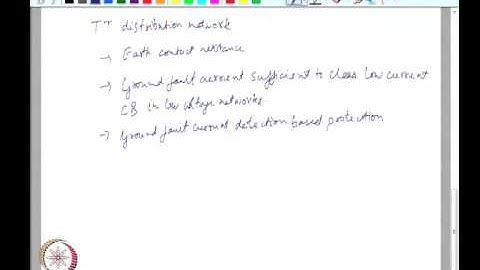 TT distribution network
→ Earth contact resistance
→ Ground fault current sufficient to clear low current
CB in low voltage networks
→ Ground fault current detection based protection